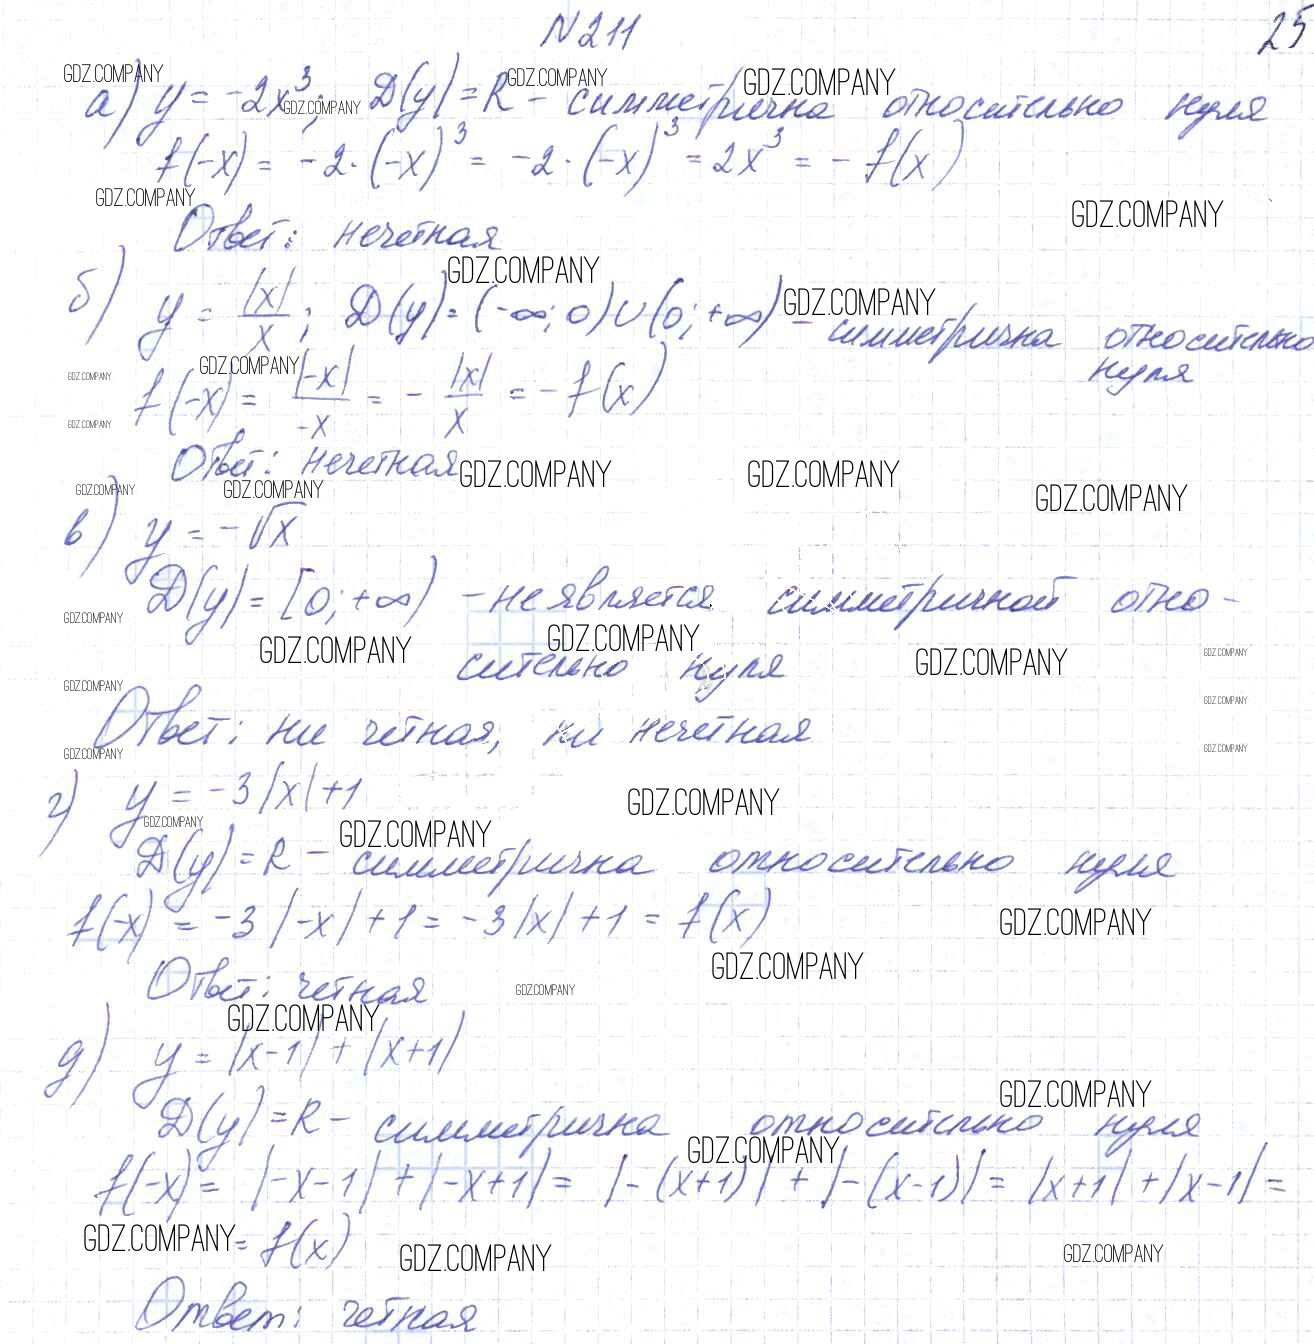 N 211
25
а) y = -2x³; D(y) = R - симметрична относительно нуля
f(-x) = -2·(-x)³ = -2·(-x)³ = 2x³ = -f(x)
Ответ: нечетная
б) y = |x|/x; D(y) = (-∞; 0)∪(0; +∞) - симметрична относительно
нуля
f(-x) = |-x|/-x = -|x|/x = -f(x)
Ответ: нечетная
в) y = -√x
D(y) = [0; +∞) - не является симметричной отно-
сительно нуля
Ответ: ни четная, ни нечетная
г) y = -3|x|+1
D(y) = R - симметрична относительно нуля
f(-x) = -3|-x|+1 = -3|x|+1 = f(x)
Ответ: четная
д) y = |x-1| + |x+1|
D(y) = R - симметрична относительно нуля
f(-x) = |-x-1| + |-x+1| = |-(x+1)| + |-(x-1)| = |x+1| + |x-1| =
= f(x)
Ответ: четная
GDZ.COMPANY